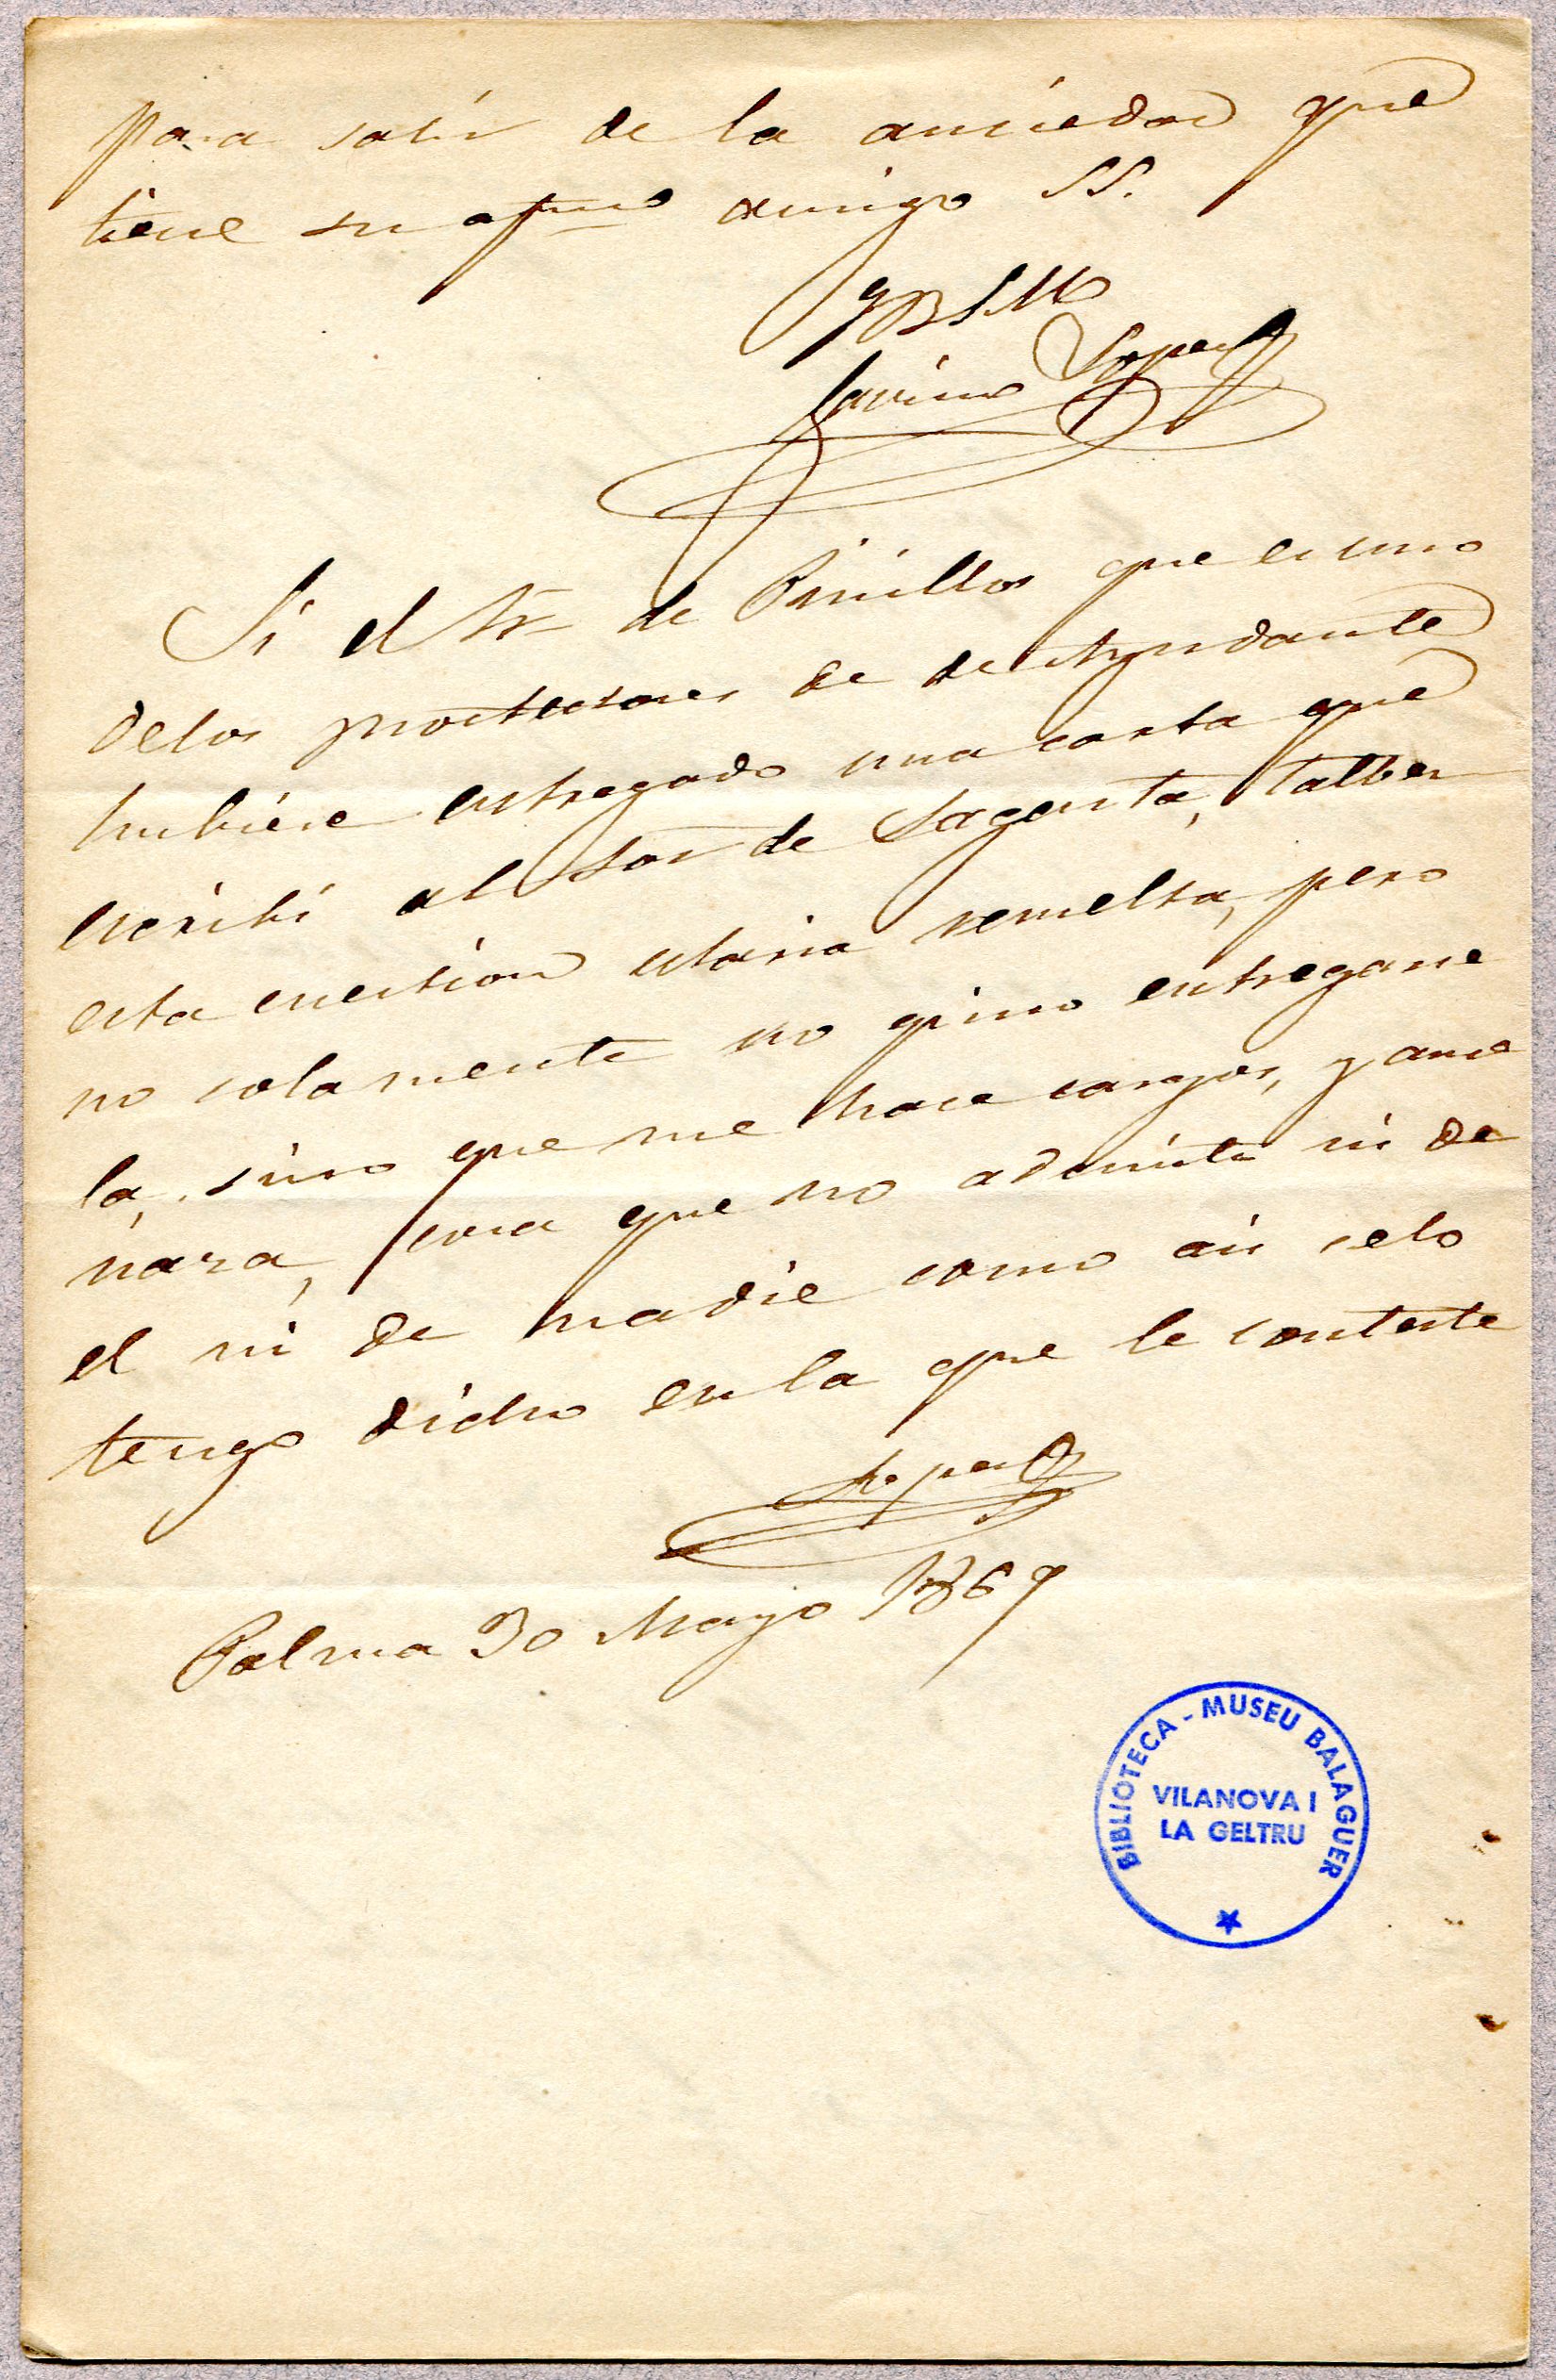 para salir de la ansiedad que
tiene su afmo amigo SS.
q B S M
Savino Lopez
Si el Sr de Pinillos que es uno
delos protectores de de Ayudante
hubiese entregado una carta que
escribi al Sor de Sagasta, talbes
esta cuestion estaria resuelta, pero
no solamente no quiso entregarse
la, sino que me hace cargos, y ame
naza, cosa que no admito ni de
el ni de nadie como asi selo
tengo dicho en la que le conteste
Lopez
Palma 30 Mayo 1869
BIBLIOTECA - MUSEU BALAGUER
VILANOVA I
LA GELTRU